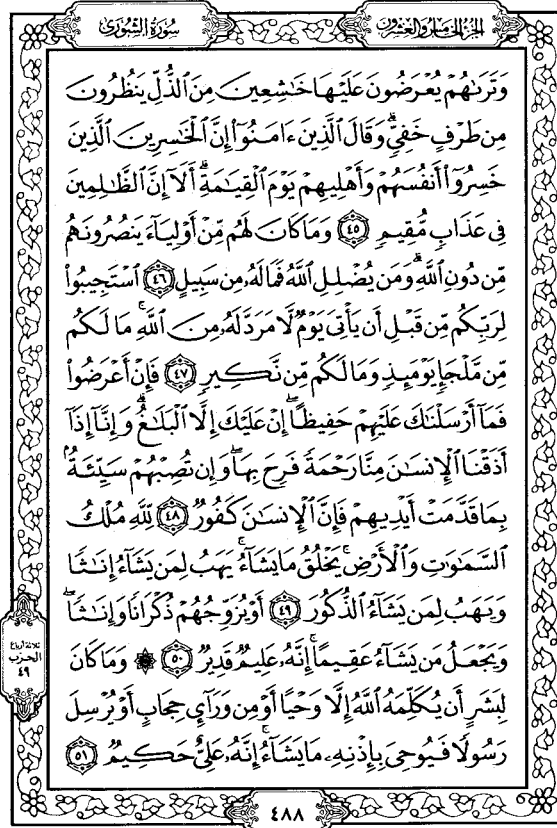 سُورَةُ الشُّورَىٰ
الجُزْءُ الخَامِسُ وَالعِشْرُونَ
وَتَرَىٰهُمْ يُعْرَضُونَ عَلَيْهَا خَٰشِعِينَ مِنَ ٱلذُّلِّ يَنظُرُونَ
مِن طَرْفٍ خَفِيٍّۗ وَقَالَ ٱلَّذِينَ ءَامَنُوٓا۟ إِنَّ ٱلْخَٰسِرِينَ ٱلَّذِينَ
خَسِرُوٓا۟ أَنفُسَهُمْ وَأَهْلِيهِمْ يَوْمَ ٱلْقِيَٰمَةِۗ أَلَآ إِنَّ ٱلظَّٰلِمِينَ
فِى عَذَابٍ مُّقِيمٍ ٤٥ وَمَا كَانَ لَهُم مِّنْ أَوْلِيَآءَ يَنصُرُونَهُم
مِّن دُونِ ٱللَّهِۗ وَمَن يُضْلِلِ ٱللَّهُ فَمَا لَهُۥ مِن سَبِيلٍ ٤٦ ٱسْتَجِيبُوا۟
لِرَبِّكُم مِّن قَبْلِ أَن يَأْتِىَ يَوْمٌ لَّا مَرَدَّ لَهُۥ مِنَ ٱللَّهِۚ مَا لَكُم
مِّن مَّلْجَإٍ يَوْمَئِذٍ وَمَا لَكُم مِّن نَّكِيرٍ ٤٧ فَإِنْ أَعْرَضُوا۟
فَمَآ أَرْسَلْنَٰكَ عَلَيْهِمْ حَفِيظًاۖ إِنْ عَلَيْكَ إِلَّا ٱلْبَلَٰغُۗ وَإِنَّآ إِذَآ
أَذَقْنَا ٱلْإِنسَٰنَ مِنَّا رَحْمَةً فَرِحَ بِهَاۖ وَإِن تُصِبْهُمْ سَيِّئَةٌۢ
بِمَا قَدَّمَتْ أَيْدِيهِمْ فَإِنَّ ٱلْإِنسَٰنَ كَفُورٌ ٤٨ لِّلَّهِ مُلْكُ
ٱلسَّمَٰوَٰتِ وَٱلْأَرْضِۚ يَخْلُقُ مَا يَشَآءُۚ يَهَبُ لِمَن يَشَآءُ إِنَٰثًا
وَيَهَبُ لِمَن يَشَآءُ ٱلذُّكُورَ ٤٩ أَوْ يُزَوِّجُهُمْ ذُكْرَانًا وَإِنَٰثًاۖ
وَيَجْعَلُ مَن يَشَآءُ عَقِيمًاۚ إِنَّهُۥ عَلِيمٌ قَدِيرٌ ٥٠ ۞ وَمَا كَانَ
لِبَشَرٍ أَن يُكَلِّمَهُ ٱللَّهُ إِلَّا وَحْيًا أَوْ مِن وَرَآئِ حِجَابٍ أَوْ يُرْسِلَ
رَسُولًا فَيُوحِىَ بِإِذْنِهِۦ مَا يَشَآءُۚ إِنَّهُۥ عَلِىٌّ حَكِيمٌ ٥١
ثلاثة أرباع
الحزب
٤٩
٤٨٨